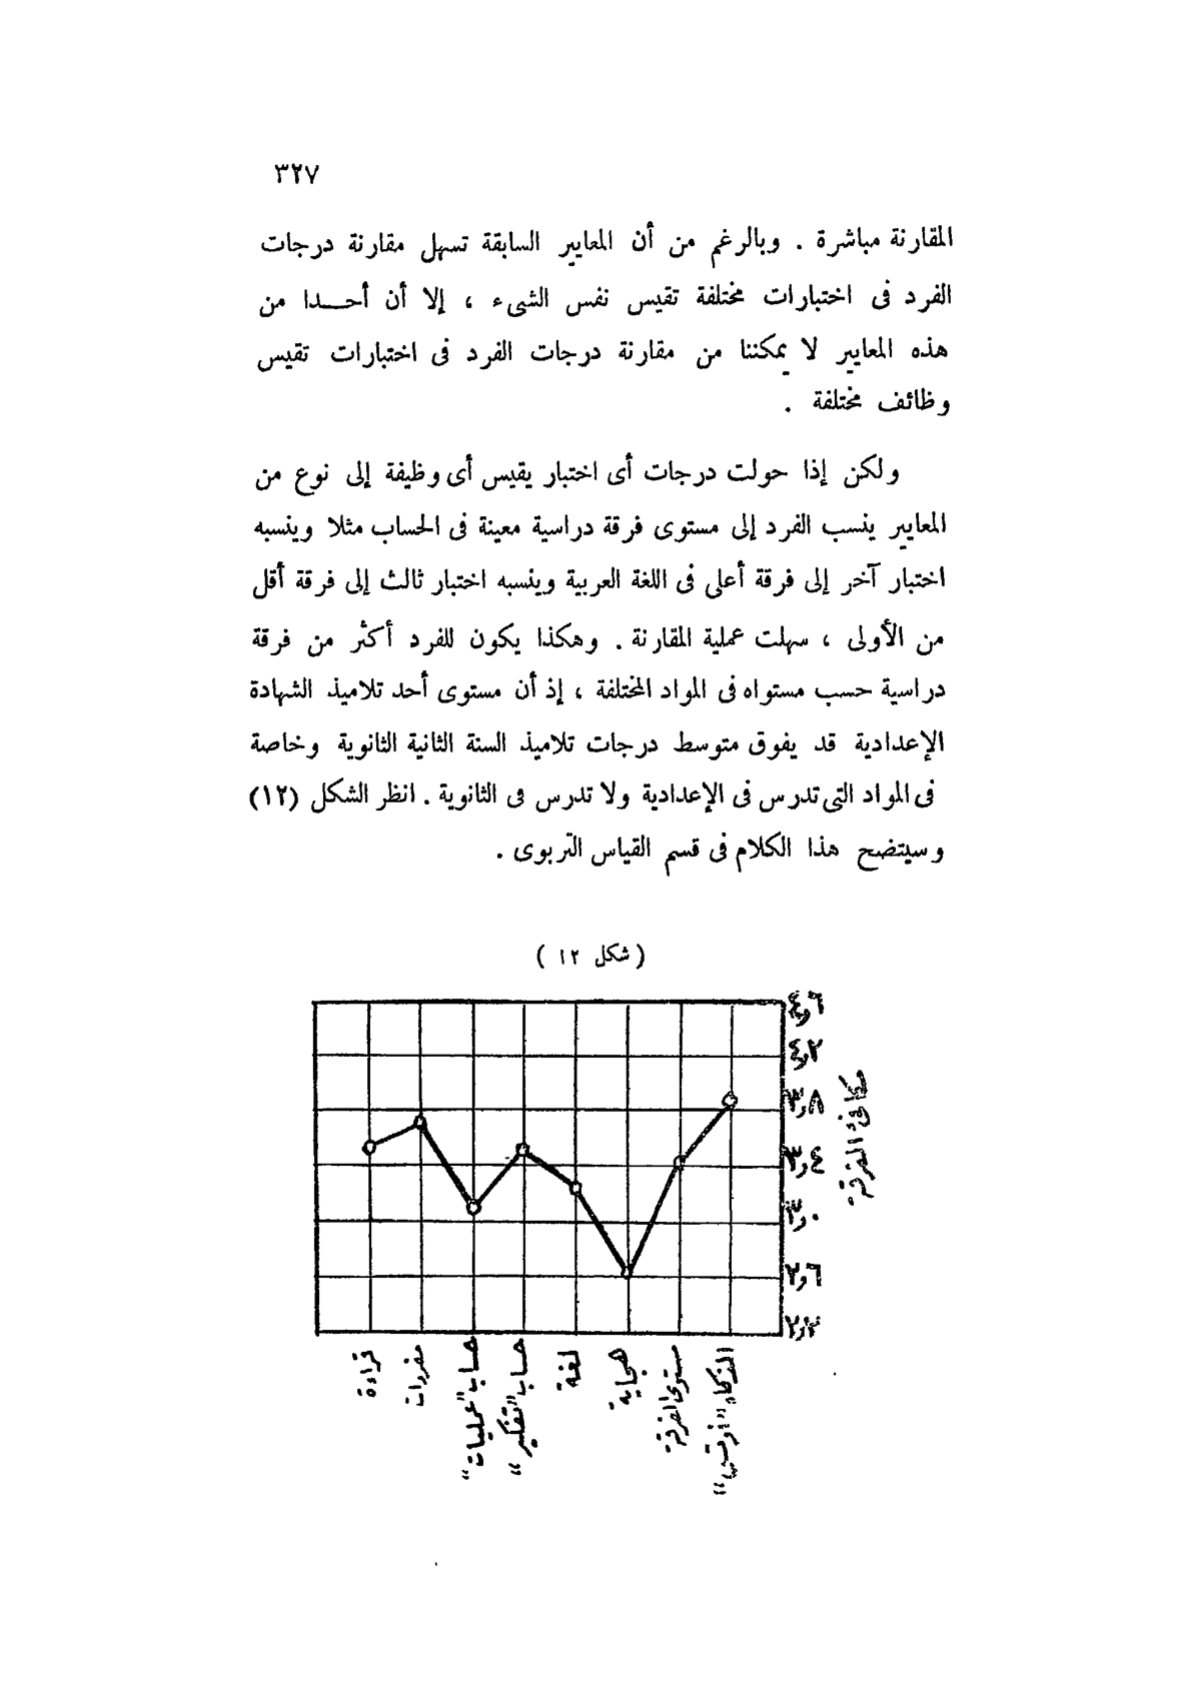 ٣٢٧
المقارنة مباشرة . وبالرغم من أن المعايير السابقة تسهل مقارنة درجات
الفرد فى اختبارات مختلفة تقيس نفس الشىء ، إلا أن أحـــدا من
هذه المعايير لا يمكننا من مقارنة درجات الفرد فى اختبارات تقيس
وظائف مختلفة .
ولكن إذا حولت درجات أى اختبار يقيس أى وظيفة إلى نوع من
المعايير ينسب الفرد إلى مستوى فرقة دراسية معينة فى الحساب مثلا وينسبه
اختبار آخر إلى فرقة أعلى فى اللغة العربية وينسبه اختبار ثالث إلى فرقة أقل
من الأولى ، سهلت عملية المقارنة . وهكذا يكون للفرد أكثر من فرقة
دراسية حسب مستواه فى المواد المختلفة ، إذ أن مستوى أحد تلاميذ الشهادة
الإعدادية قد يفوق متوسط درجات تلاميذ السنة الثانية الثانوية وخاصة
فى المواد التى تدرس فى الإعدادية ولا تدرس فى الثانوية . انظر الشكل (١٢)
وسيتضح هذا الكلام فى قسم القياس التربوى .
( شكل ١٢ )
٤,٦
٤,٢
٣,٨
٣,٤
٣,٠
٢,٦
٢,٢
مكافئ الفرقة
قراءة
مفردات
حساب "عمليات"
حساب "تفكير"
لغة
هجاية
مستوى الفرقة
الذكاء "أوتيس"